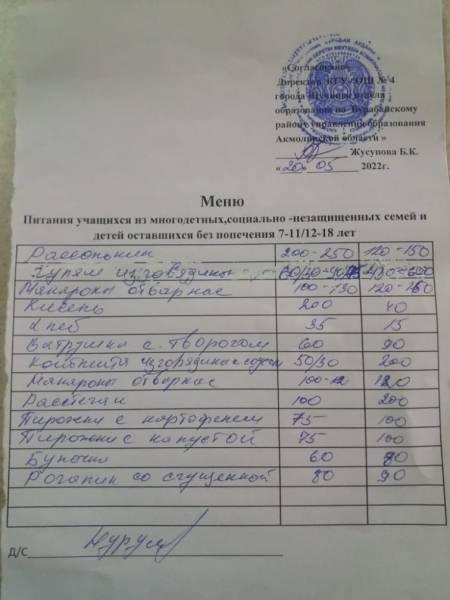 «Согласовано»
Директор КГУ «ОШ № 4
города Щучинск отдела
образования по Бурабайскому
району управления образования
Акмолинской области»
Жусупова Б.К.
«20» 05 2022г.
Меню
Питания учащихся из многодетных,социально -незащищенных семей и
детей оставшихся без попечения 7-11/12-18 лет
Рассольник 200-250 120-150
из говядины
Макароны отварнас 100-130 120-160
Кисель 200 40
Хлеб 35 15
Ватрушка с творогом 60 90
50/50 200
Макароны отварнас 120
Расстегаи 100 200
Пирожки с картофелем 75 100
Пирожки с капустой 75 100
Булочки 60 80
Рогалик со сгущенкой 80 90
Д/С